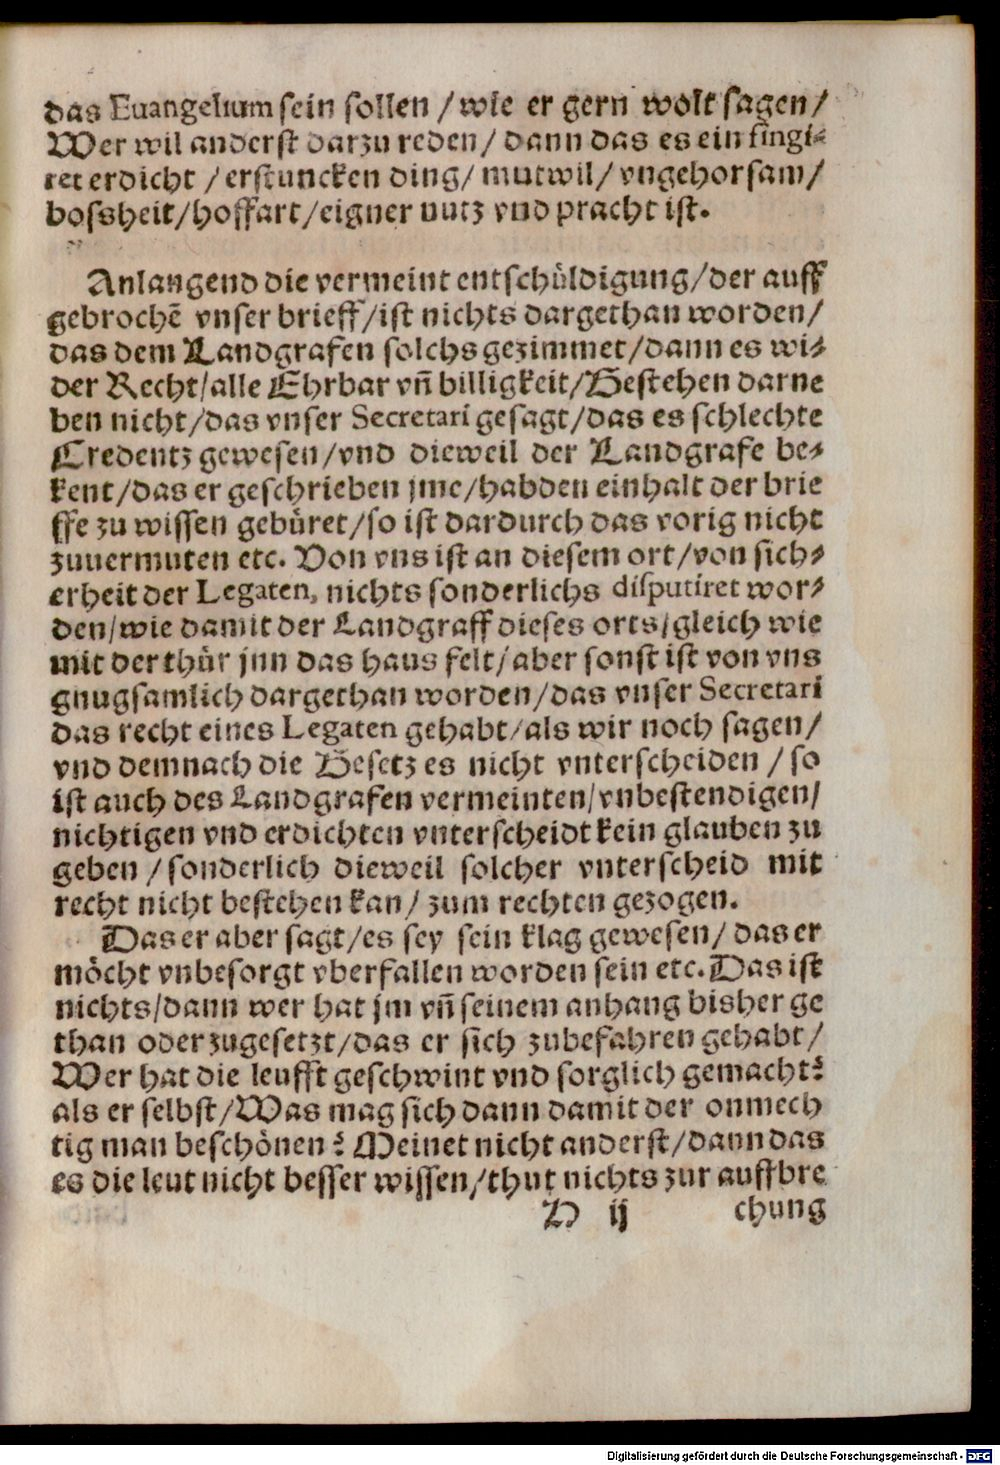 das Euangelium sein sollen / wie er gern wolt sagen /
Wer wil anderst darzu reden / dann das es ein fingi-
ret erdicht / erstuncken ding / mutwil / vngehorsam /
bossheit / hoffart / eigner nutz vnd pracht ist.
Anlangend die vermeint entschüldigung / der auff
gebrochē vnser brieff / ist nichts dargethan worden /
das dem Landgrafen solchs gezimmet / dann es wi-
der Recht / alle Ehrbar vñ billigkeit / Gestehen darne
ben nicht / das vnser Secretari gesagt / das es schlechte
Credentz gewesen / vnd dieweil der Landgrafe be-
kent / das er geschrieben jme / habden einhalt der brie
ffe zu wissen gebüret / so ist dardurch das vorig nicht
zuuermuten etc. Von vns ist an diesem ort / von sich-
erheit der Legaten, nichts sonderlichs disputiret wor-
den / wie damit der Landgraff dieses orts / gleich wie
mit der thür jnn das haus felt / aber sonst ist von vns
gnugsamlich dargethan worden / das vnser Secretari
das recht eines Legaten gehabt / als wir noch sagen /
vnd demnach die Gesetz es nicht vnterscheiden / so
ist auch des Landgrafen vermeinten / vnbestendigen /
nichtigen vnd erdichten vnterscheidt kein glauben zu
geben / sonderlich dieweil solcher vnterscheid mit
recht nicht bestehen kan / zum rechten gezogen.
Das er aber sagt / es sey sein klag gewesen / das er
möcht vnbesorgt vberfallen worden sein etc. Das ist
nichts / dann wer hat jm vñ seinem anhang bisher ge
than oder zugesetzt / das er sich zubefahren gehabt /
Wer hat die leufft geschwint vnd sorglich gemacht?
als er selbst / Was mag sich dann damit der onmech
tig man beschönen? Meinet nicht anderst / dann das
es die leut nicht besser wissen / thut nichts zur auffbre
D ij chung
Digitalisierung gefördert durch die Deutsche Forschungsgemeinschaft - DFG